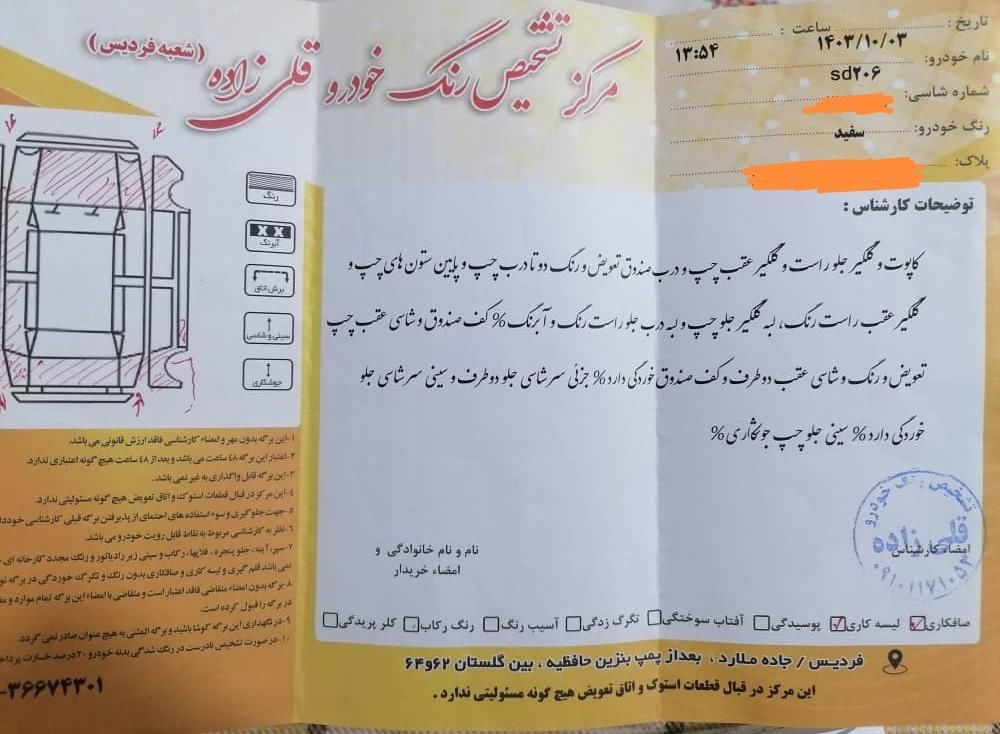 مرکز تشخیص رنگ خودرو قلی زاده (شعبه فردیس)
تاریخ : ساعت :
۱۴۰۳/۱۰/۰۳ ۱۳:۵۴
نام خودرو:
sd۲۰۶
شماره شاسی:
رنگ خودرو: سفید
پلاک:
توضیحات کارشناس :
کاپوت و گلگیر جلو راست و گلگیر عقب چپ و درب صندوق تعویض و رنگ دو تا درب چپ و پایین ستون های چپ و
گلگیر عقب راست رنگ، لبه گلگیر جلو چپ و لبه درب جلو راست رنگ و آبرنگ % کف صندوق و شاسی عقب چپ
تعویض و رنگ و شاسی عقب دو طرف و کف صندوق خوردگی دارد % جزئی سر شاسی جلو دو طرف و سینی سر شاسی جلو
خوردگی دارد % سینی جلو چپ جوشکاری %
رنگ
آبرنگ
برش اتاق
سینی و شاسی
جوشکاری
۱-این برگه بدون مهر و امضاء کارشناسی فاقد ارزش قانونی می باشد.
۲-اعتبار این برگه ۴۸ ساعت می باشد و بعد از ۴۸ ساعت هیچ گونه اعتباری ندارد.
۳-این برگه قابل واگذاری به غیر نمی باشد.
۴-این مرکز در قبال قطعات استوک و اتاق تعویض هیچ گونه مسئولیتی ندارد.
۵-جهت جلوگیری و سوء استفاده های احتمالی از پذیرفتن برگه قبلی کارشناسی خوددا
۶-نظر به کارشناسی مربوط به نقاط قابل رویت خودرو می باشد.
۷-سپر، آینه، جلو پنجره، فلاپها، رکاب و سینی زیر رادیاتور و رنگ مجدد کارخانه ای
نمی باشد قلم گیری و لیسه کاری و صافکاری بدون رنگ و تگرگ خوردگی در برگه
۸-برگه بدون امضاء متقاضی فاقد اعتبار است و متقاضی با امضاء این برگه تمام موارد و
در برگه را قبول کرده است.
۹-در نگهداری این برگه کوشا باشید و برگه المثنی به هیچ عنوان صادر نمی گردد.
۱۰-در صورت تشخیص نادرست در رنگ شدگی بدنه خودرو ۲۰ درصد خسارت پرداخ
۳۶۶۷۴۳۰۱
نام و نام خانوادگی و
امضاء خریدار
امضاء کارشناس
تشخیص رنگ خودرو
قلی زاده
صافکاری لیسه کاری پوسیدگی آفتاب سوختگی تگرگ زدگی آسیب رنگ رنگ رکاب کلر پریدگی
فردیس / جاده ملارد ، بعداز پمپ بنزین حافظیه ، بین گلستان ۶۲و۶۴
این مرکز در قبال قطعات استوک و اتاق تعویض هیچ گونه مسئولیتی ندارد .